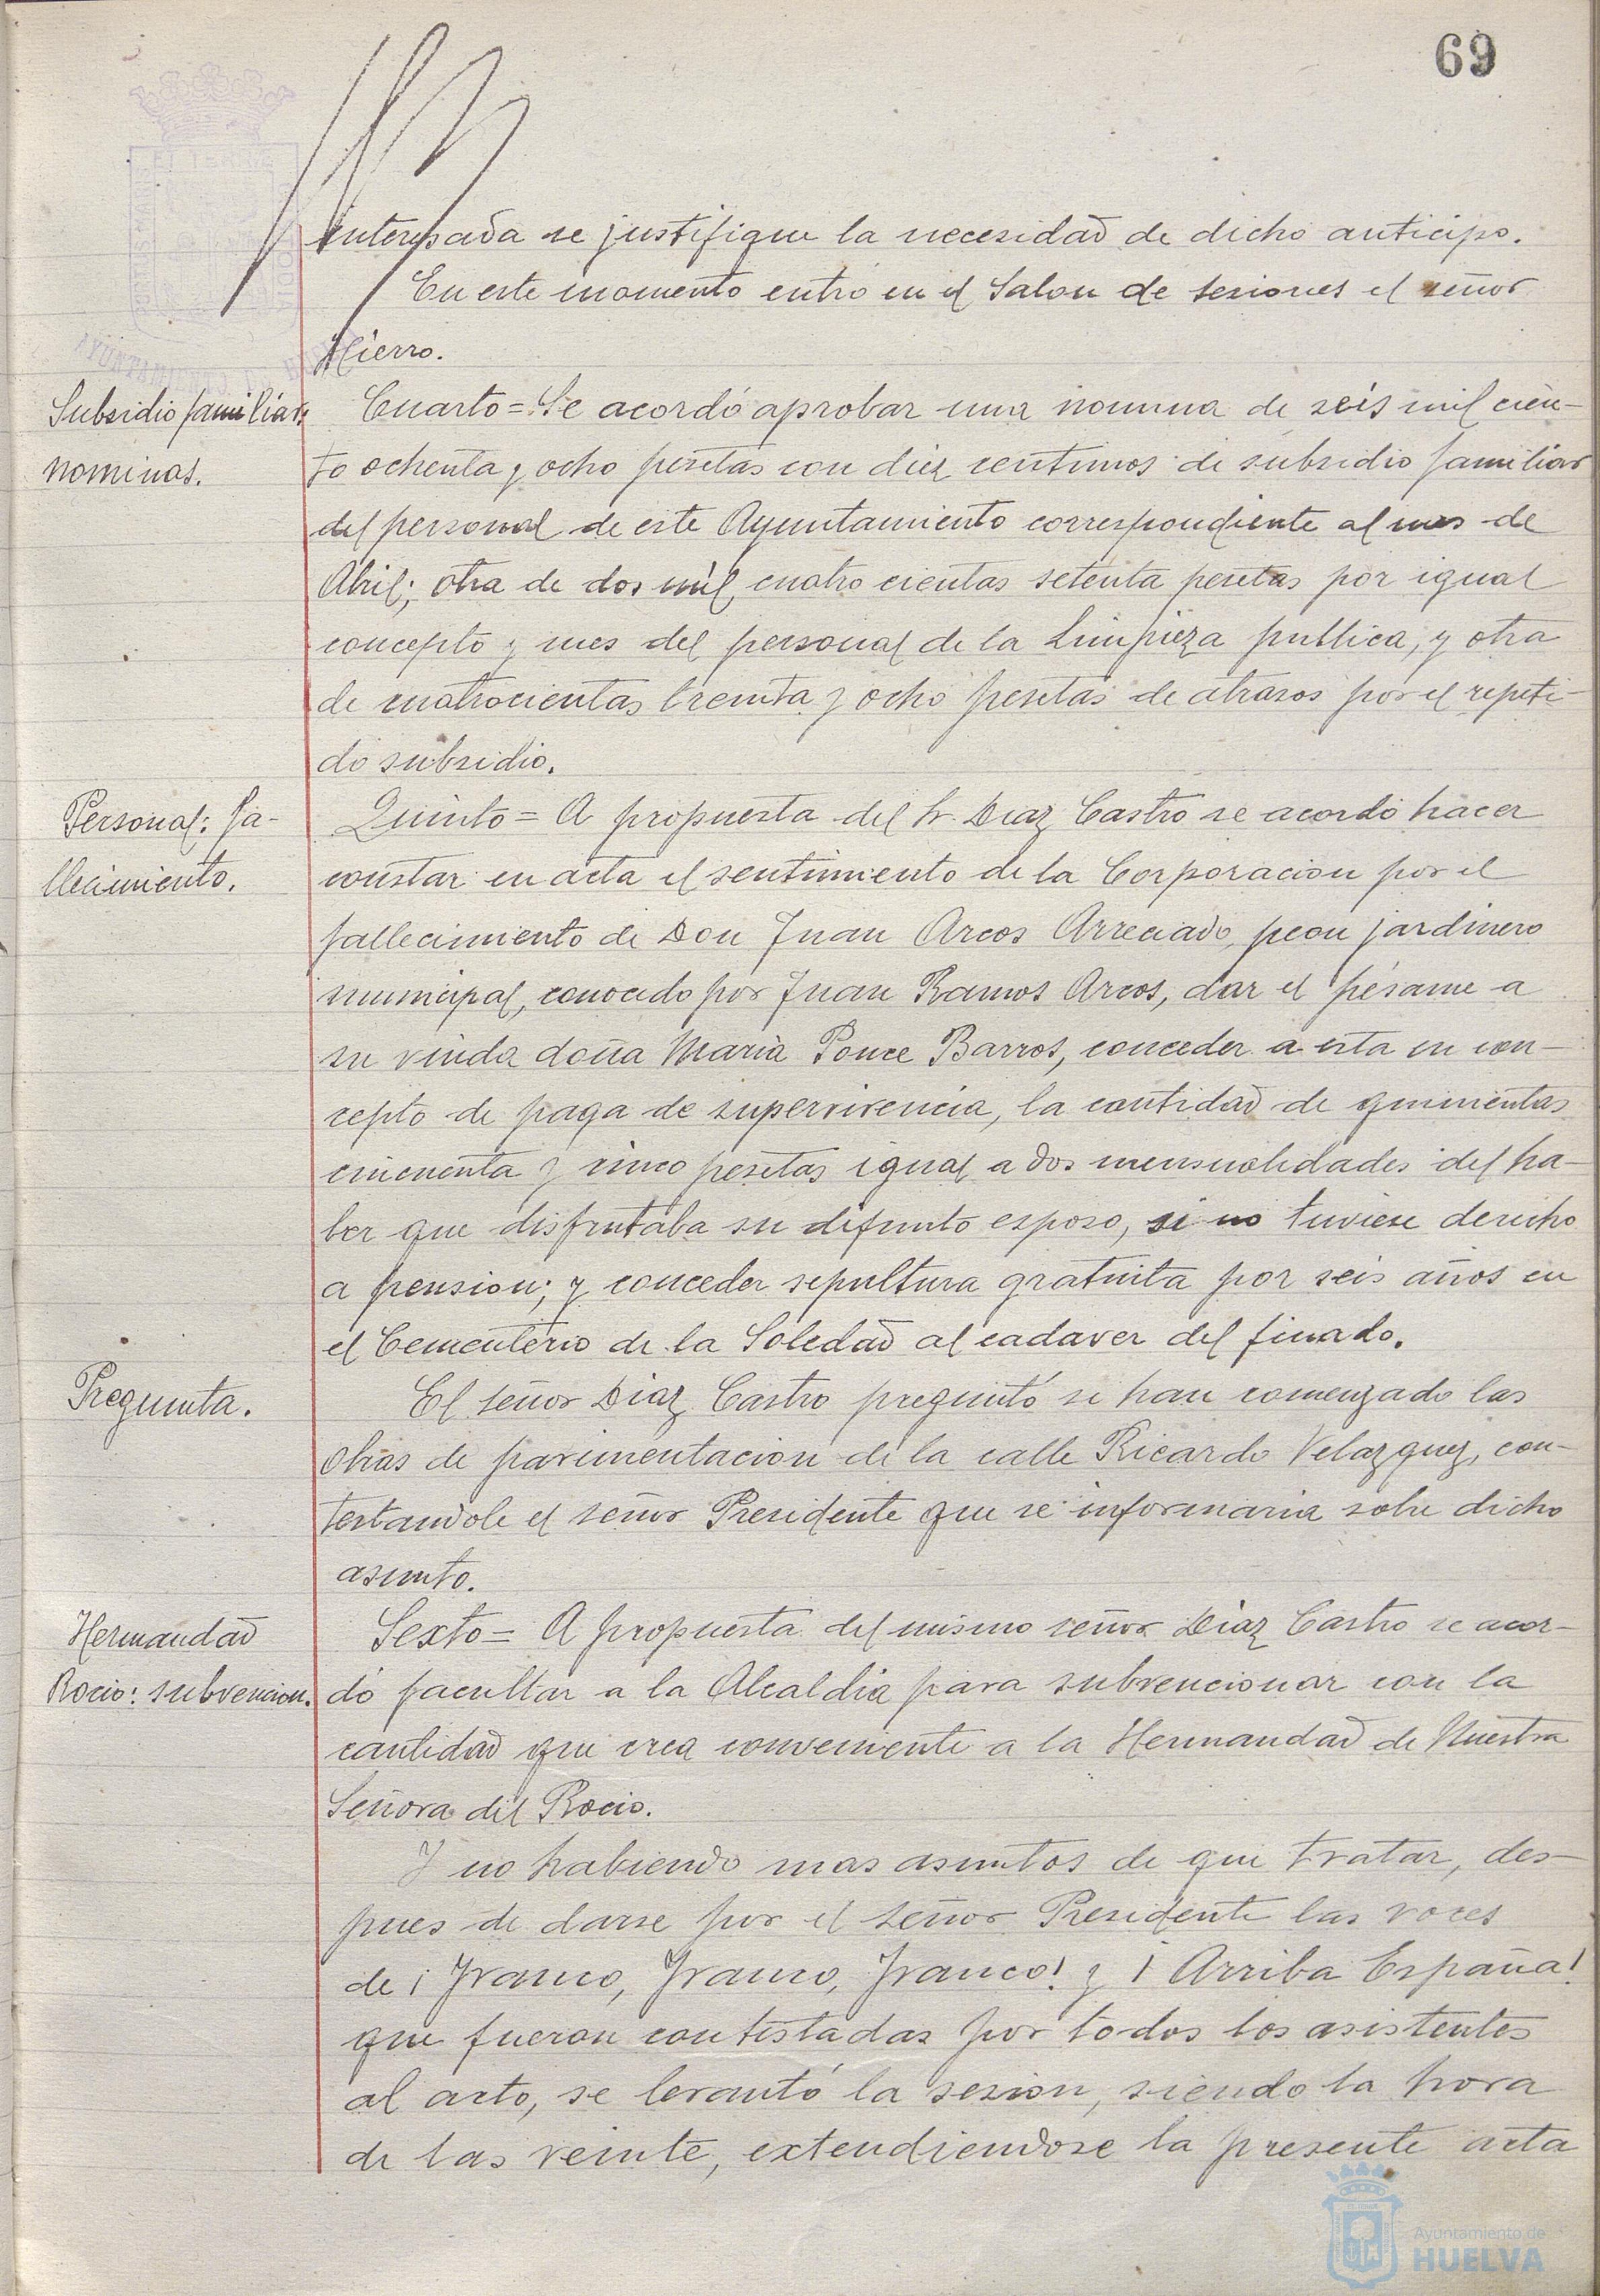 69
interesada se justifique la necesidad de dicho anticipo.
En este momento entró en el Salon de sesiones el señor
Hierro.
Subsidio familiar:
nominas.
Cuarto = Se acordó aprobar una nomina de seis mil cien-
to ochenta y ocho pesetas con diez centimos de subsidio familiar
del personal de este Ayuntamiento correspondiente al mes de
Abril; otra de dos mil cuatro cientas setenta pesetas por igual
concepto y mes del personal de la Limpieza publica, y otra
de cuatrocientas treinta y ocho pesetas de atrasos por el repeti-
do subsidio.
Personal: fa-
llecimiento.
Quinto = A propuesta del Sr. Diaz Castro se acordó hacer
constar en acta el sentimiento de la Corporacion por el
fallecimiento de Don Juan Arcos Arreciado, peon jardinero
municipal, conocido por Juan Ramos Arcos, dar el pésame a
su viuda doña Maria Ponce Barros, conceder a esta en con-
cepto de paga de supervivencia, la cantidad de quinientas
cincuenta y cinco pesetas igual a dos mensualidades del ha-
ber que disfrutaba su difunto esposo, si no tuviese derecho
a pension; y conceder sepultura gratuita por seis años en
el Cementerio de la Soledad al cadaver del finado.
Pregunta.
El señor Diaz Castro preguntó si han comenzado las
obras de pavimentacion de la calle Ricardo Velazquez, con-
testandole el señor Presidente que se informaria sobre dicho
asunto.
Hermandad
Rocio: subvencion.
Sexto = A propuesta del mismo señor Diaz Castro se acor-
dó facultar a la Alcaldia para subvencionar con la
cantidad que crea conveniente a la Hermandad de Nuestra
Señora del Rocio.
Y no habiendo mas asuntos de que tratar, des-
pues de darse por el señor Presidente las voces
de ¡Franco, Franco, Franco! y ¡Arriba España!
que fueron contestadas por todos los asistentes
al acto, se levantó la sesion, siendo la hora
de las veinte, extendiendose la presente acta
Ayuntamiento de
HUELVA